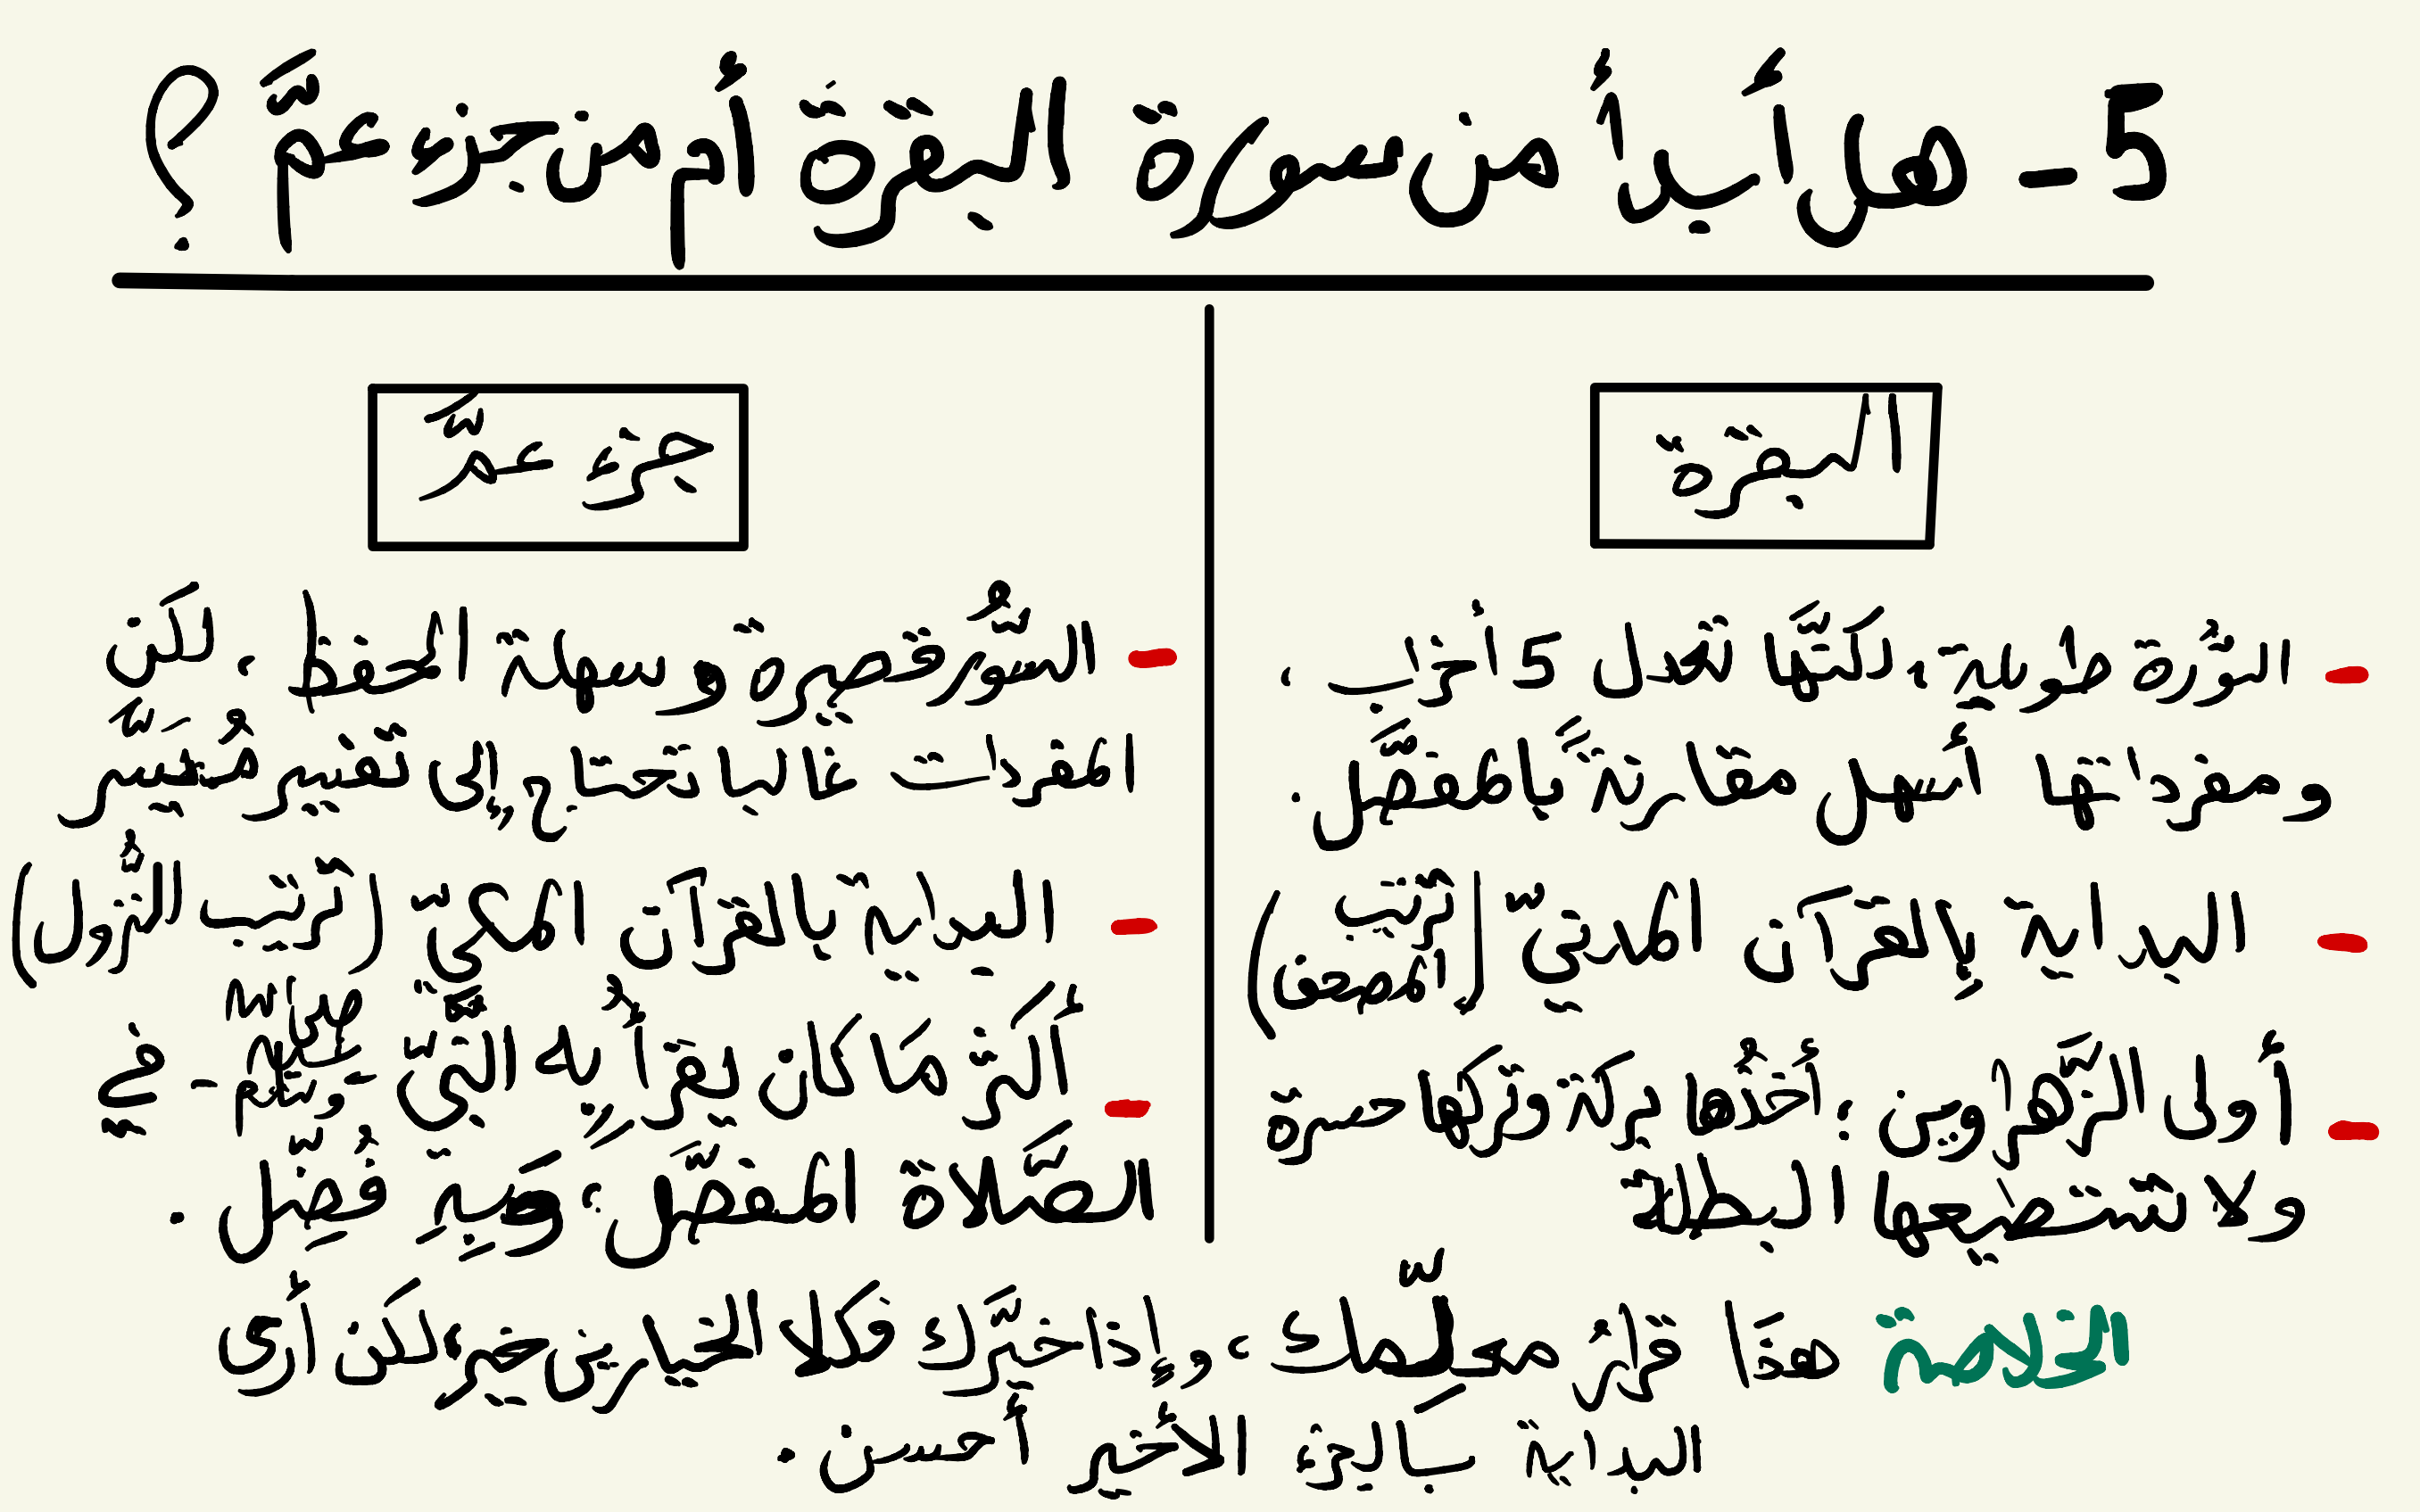 5 - هل أبدأ من سورة البقرة أم من جزء عمَّ ؟
البقرة
السُّورة طويلة، لكنَّها تعدل 5 أحزاب،
ومفرداتها أسهل مقارنةً بالمفصَّل.
- البداية بِالقرآن المدنيّ (ترتيب المصحف)
- أولى الزَّهراوين؛ أخذُها بركة وتركها حسرة
ولا تستطيعها البطلة
جزء عمَّ
- السُّوَر قصيرة وسهلة الحفظ، لكَن
المفردات غالبا تحتاج إلى تفسير مُتيسَّر
- البداية بالقرآن المكيّ (ترتيب النُّزول)
- أكثر مَا كان يقرأُ بِه النَّبيّ - صلى الله عليه وسلم - في
الصَّلاة المفصَّل؛ وَبِهِ فُضِّل.
الخلاصة هذَا قرارُ معلِّمك، وإِذا خيَّرك فَكلا الخيارين خير، لكن أرى
البداية بالجزء الأخير أحسن.